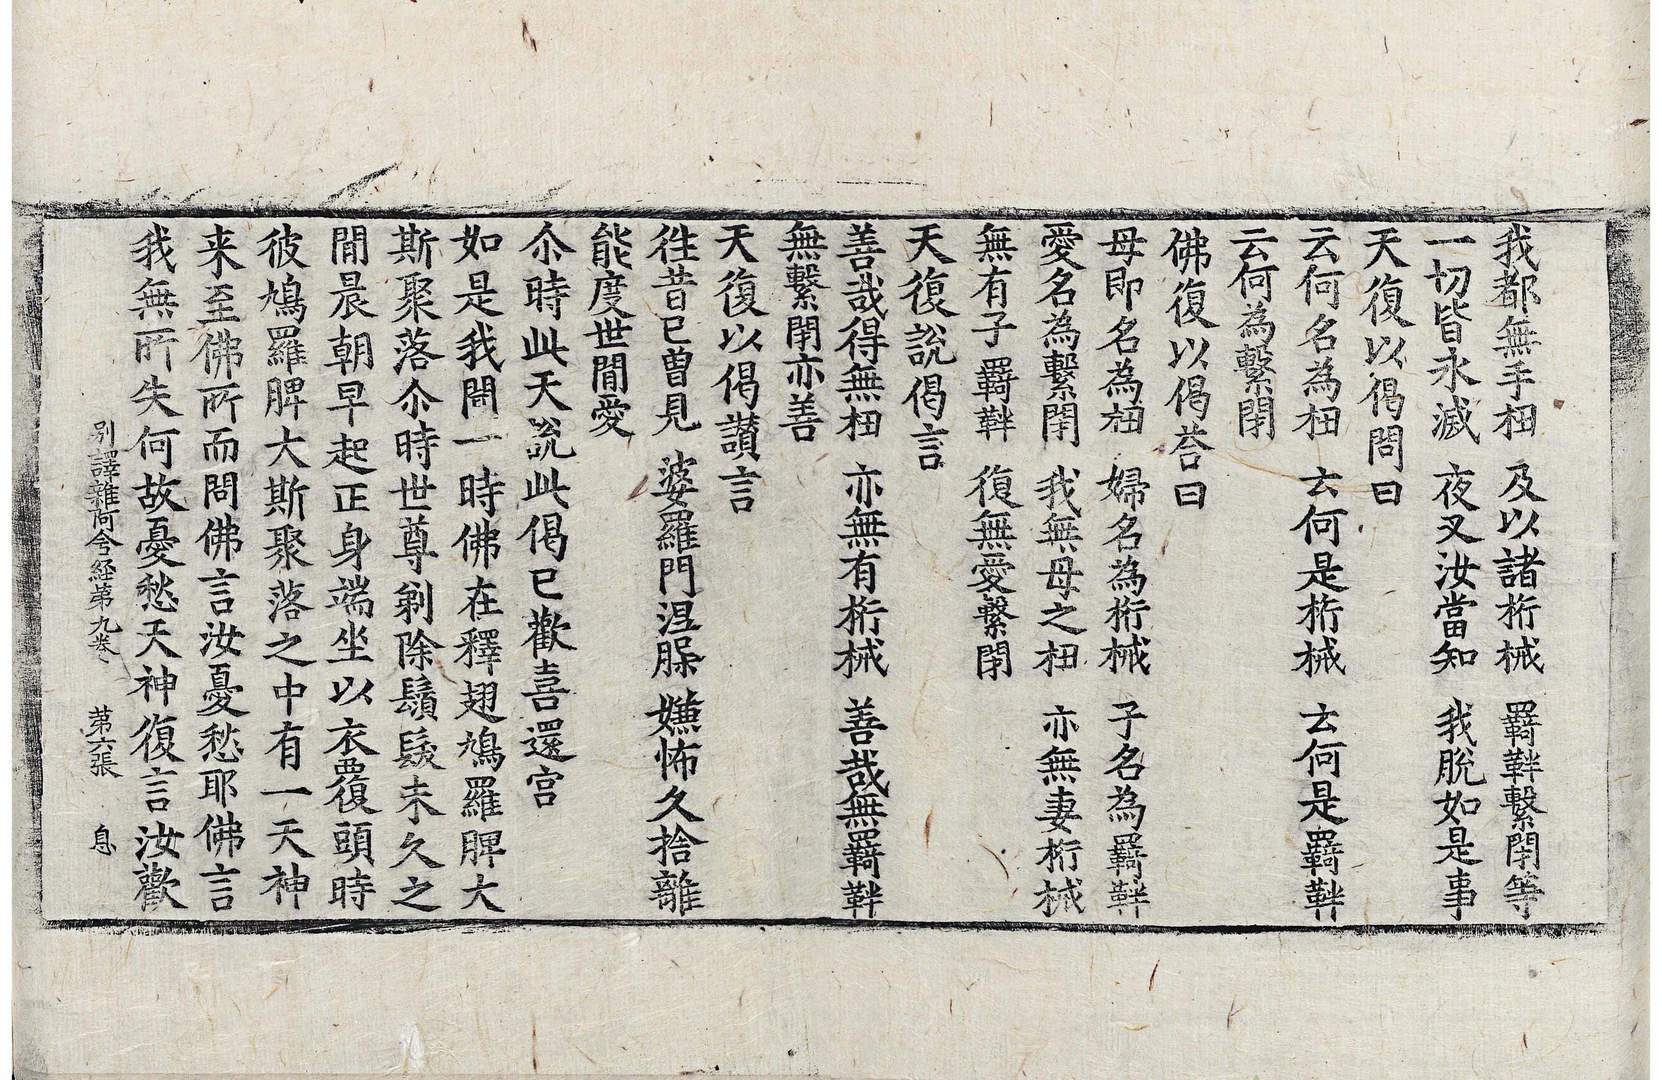 我都無手杻　及以諸桁械　羇靽繫閉等
一切皆永滅　夜叉汝當知　我脫如是事
天復以偈問曰
云何名為杻　云何是桁械　云何是羇靽
云何為繫閉
佛復以偈荅曰
母即名為杻　婦名為桁械　子名為羇靽
愛名為繫閉　我無母之杻　亦無妻桁械
無有子羇靽　復無愛繫閉
天復說偈言
善哉得無杻　亦無有桁械　善哉無羇靽
無繫閉亦善
天復以偈讃言
徃昔已曾見　婆羅門涅牃　嫌怖久捨離
能度世間愛
尒時此天說此偈已歡喜還宫
如是我聞一時佛在釋翅鳩羅脾大
斯聚落尒時世尊剃除鬚髮未久之
間晨朝早起正身端坐以衣覆頭時
彼鳩羅脾大斯聚落之中有一天神
来至佛所而問佛言汝憂愁耶佛言
我無所失何故憂愁天神復言汝歡
别譯雜阿含経苐九卷　苐六張　息